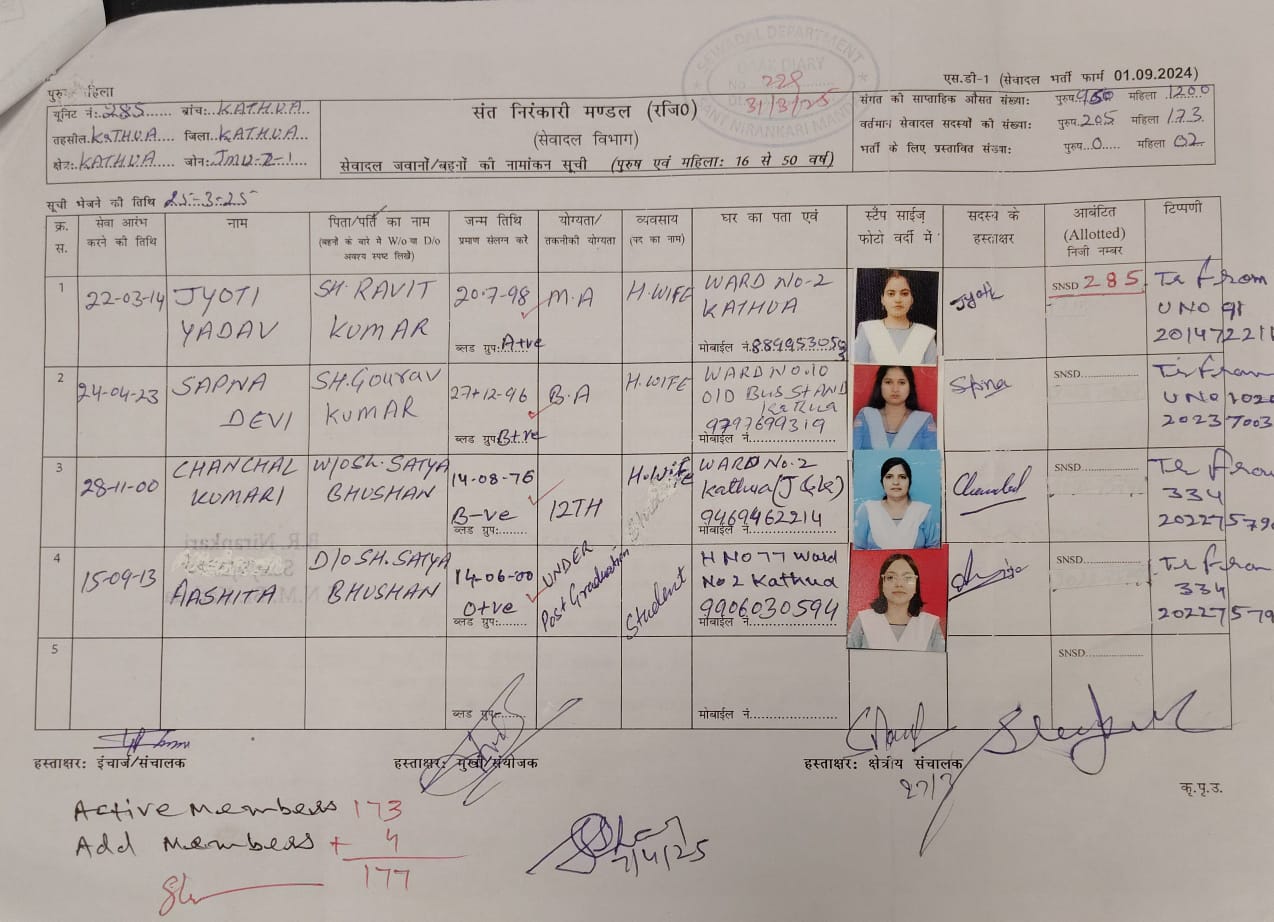 SEWADAL DEPARTMENT
DIARY
No. 228
31/3/25
SANT NIRANKARI MANDAL
एस.डी-1 (सेवादल भर्ती फार्म 01.09.2024)
पुरुष महिला
यूनिट नं: 285 ब्रांच: KATHUA
तहसील KATHUA जिला KATHUA
क्षेत्र: KATHUA जोन: JMU-Z-1
संत निरंकारी मण्डल (रजि0)
(सेवादल विभाग)
सेवादल जवानों/बहनों की नामांकन सूची (पुरुष एवं महिला: 16 से 50 वर्ष)
संगत की साप्ताहिक औसत संख्या: पुरुष 950 महिला 1200
वर्तमान सेवादल सदस्यों की संख्या: पुरुष 205 महिला 173
भर्ती के लिए प्रस्तावित संख्या: पुरुष 0 महिला 02
सूची भेजने की तिथि 25-3-25
क्र. स. सेवा आरंभ करने की तिथि नाम पिता/पति का नाम (बहनों के बारे में W/o या D/o अवश्य स्पष्ट लिखें) जन्म तिथि प्रमाण संलग्न करे योग्यता/ तकनीकी योग्यता व्यवसाय (पद का नाम) घर का पता एवं स्टैंप साईज़ फोटो वर्दी में सदस्य के हस्ताक्षर आबंटित (Allotted) निजी नम्बर टिप्पणी
1 22-03-14 JYOTI YADAV SH. RAVIT KUMAR 20-7-98 M.A H.WIFE WARD No-2 KATHUA Jyoti SNSD 285 Tr from UNO 91 201472211
ब्लड ग्रुप: A+ve मोबाईल नं.
2 24-04-23 SAPNA DEVI SH. Gourav KUMAR 27-12-96 B.A H.WIFE WARD NO.10 Old BUS STAND Kathua 9797699319 SNSD Tr from UNO 1020 20237003
ब्लड ग्रुप: B+ve मोबाईल नं.
3 28-11-00 CHANCHAL KUMARI W/O Sh. SATYA BHUSHAN 14-08-76 12TH H.wife WARD No.2 Kathua (J&K) 9469462214 SNSD Tr from 334 20227579
B-ve ब्लड ग्रुप: मोबाईल नं.
4 15-09-13 AASHITA D/O SH. SATYA BHUSHAN 14-06-00 UNDER Post Graduation Student H NO 77 Ward No 2 Kathua 9906030594 SNSD Tr from 334 20227579
O+ve ब्लड ग्रुप: मोबाईल नं.
5 SNSD
ब्लड ग्रुप: मोबाईल नं.
हस्ताक्षर: इंचार्ज/संचालक हस्ताक्षर: मुखी/संयोजक हस्ताक्षर: क्षेत्रीय संचालक
27/3
कृ.पृ.उ.
Active Members 173
Add Members + 4
177
7/4/25